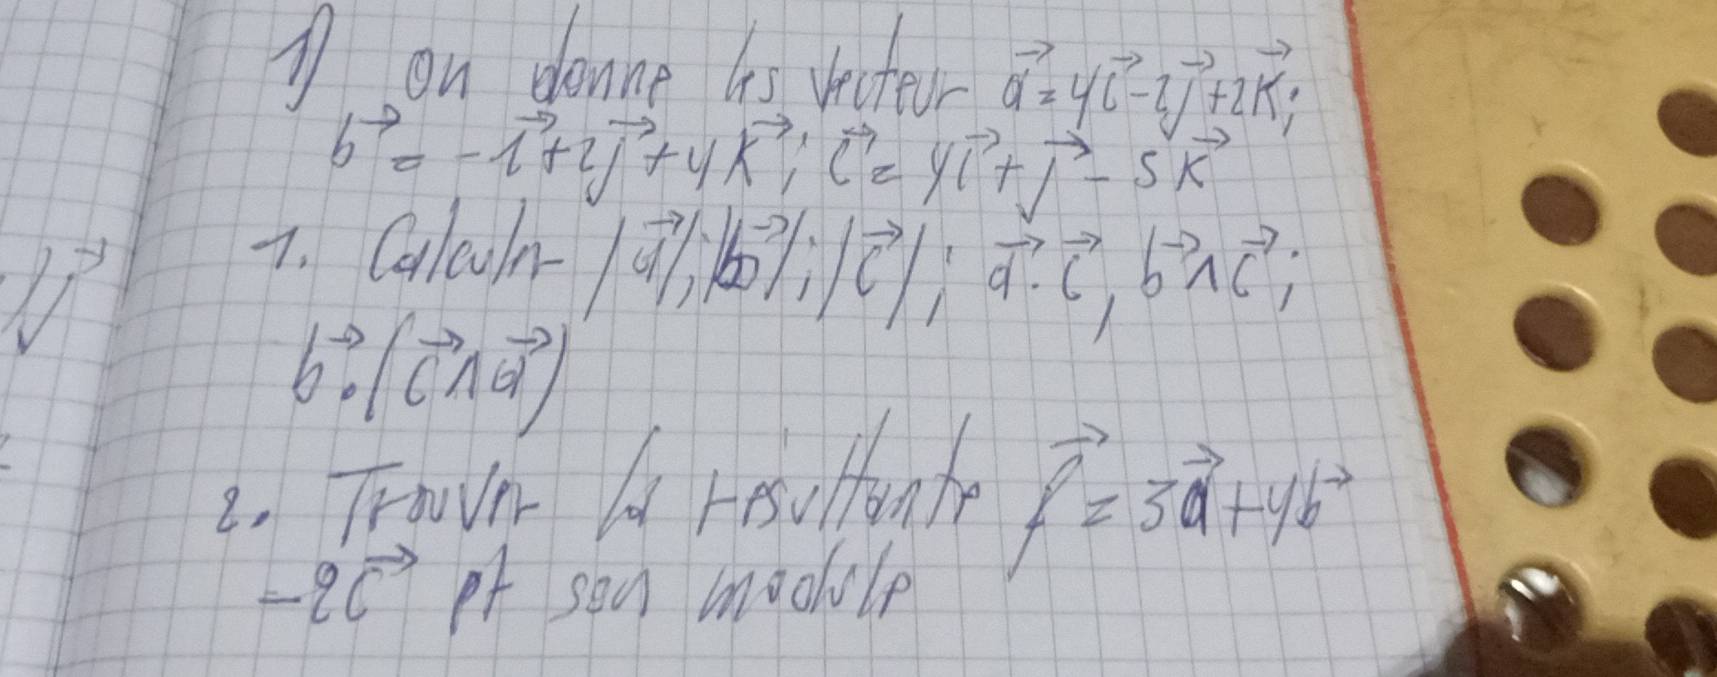 1) on donne les vecteur a⃗ = 4i⃗ - 2j⃗ + 2k⃗;
b⃗ = -i⃗ + 2j⃗ + 4k⃗; c⃗ = 4i⃗ + j⃗ - 5k⃗
1. Calculer |a⃗|; |b⃗|; |c⃗|; a⃗.c⃗, b⃗∧c⃗;
b⃗.(c⃗∧a⃗)
2. Trouver la résultante f⃗ = 3a⃗ + 4b⃗
-2c⃗ et son module